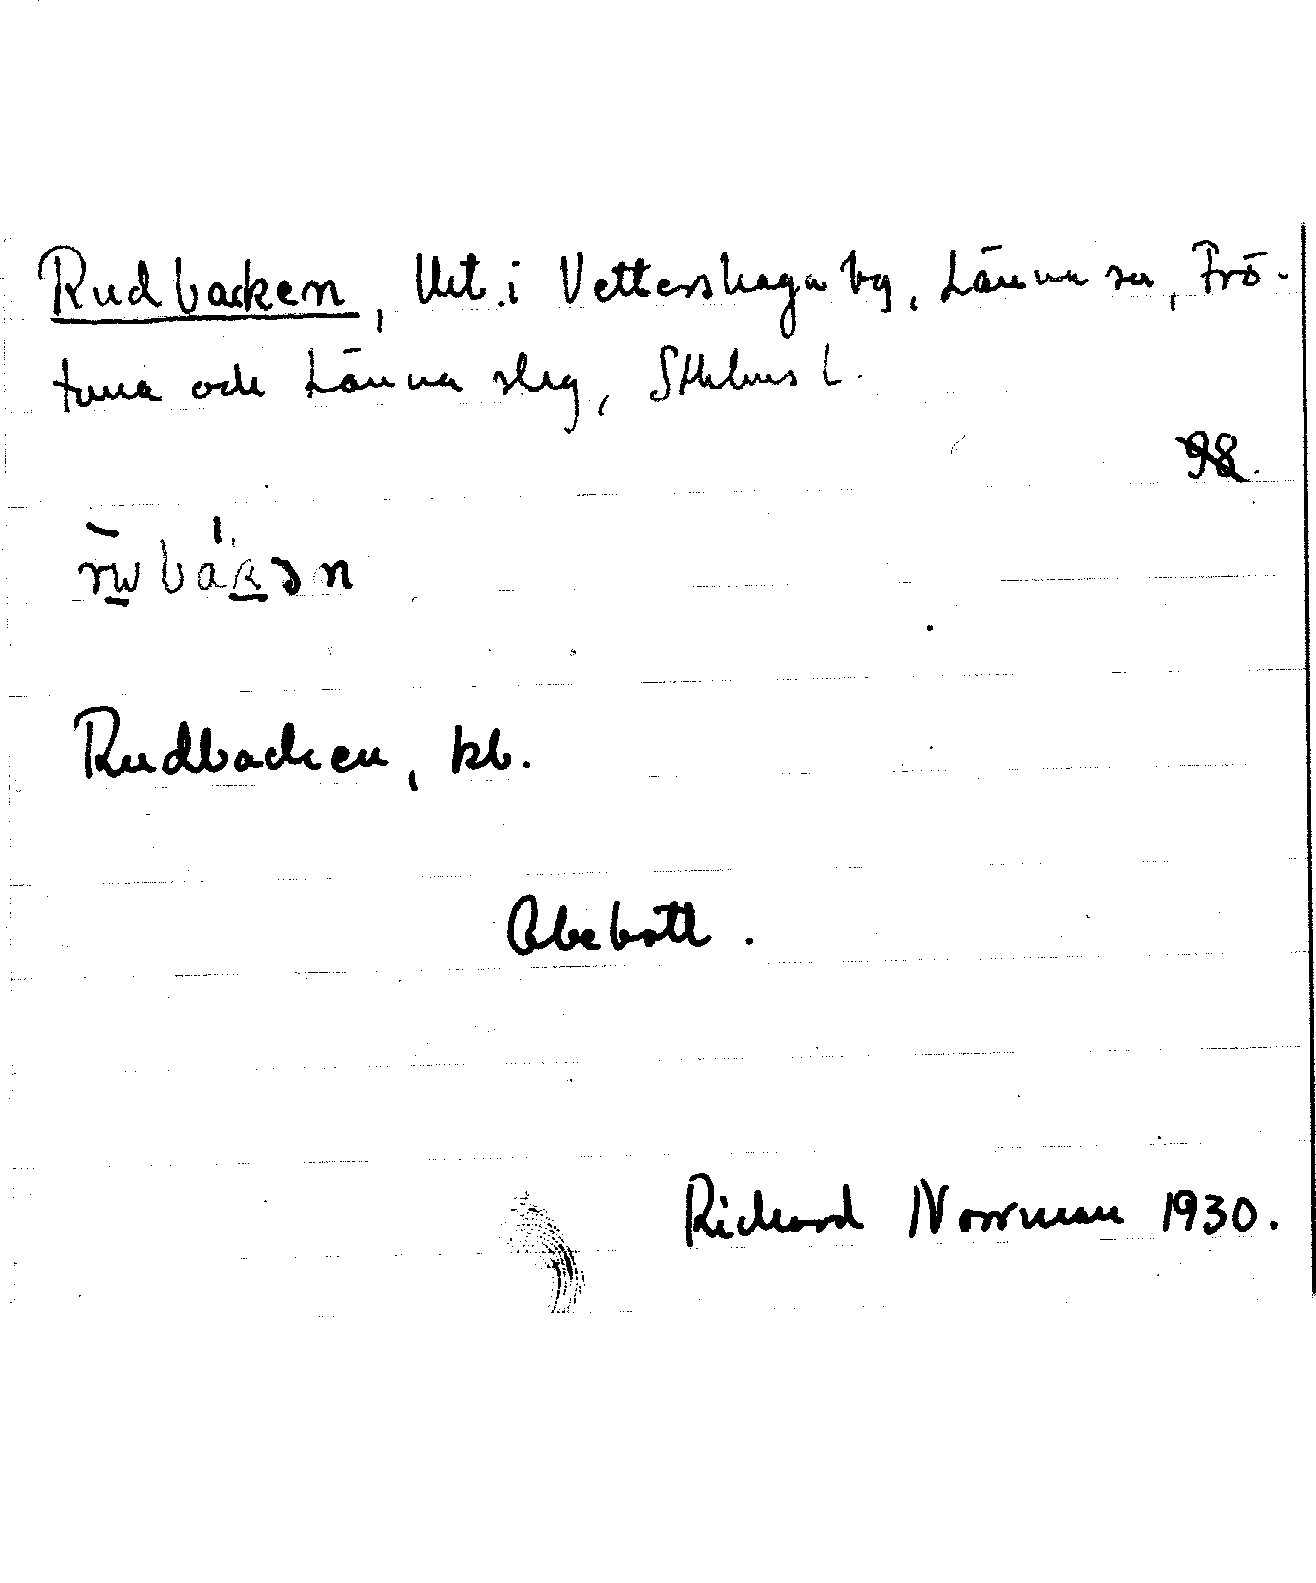 Rudbacken, Utt. i Vettershaga by, Länna sn, Frö-
tuna och Länna slg, Sthlms l.
98.
Rudbacken, kb.
Obebott.
Richard Norrman 1930.